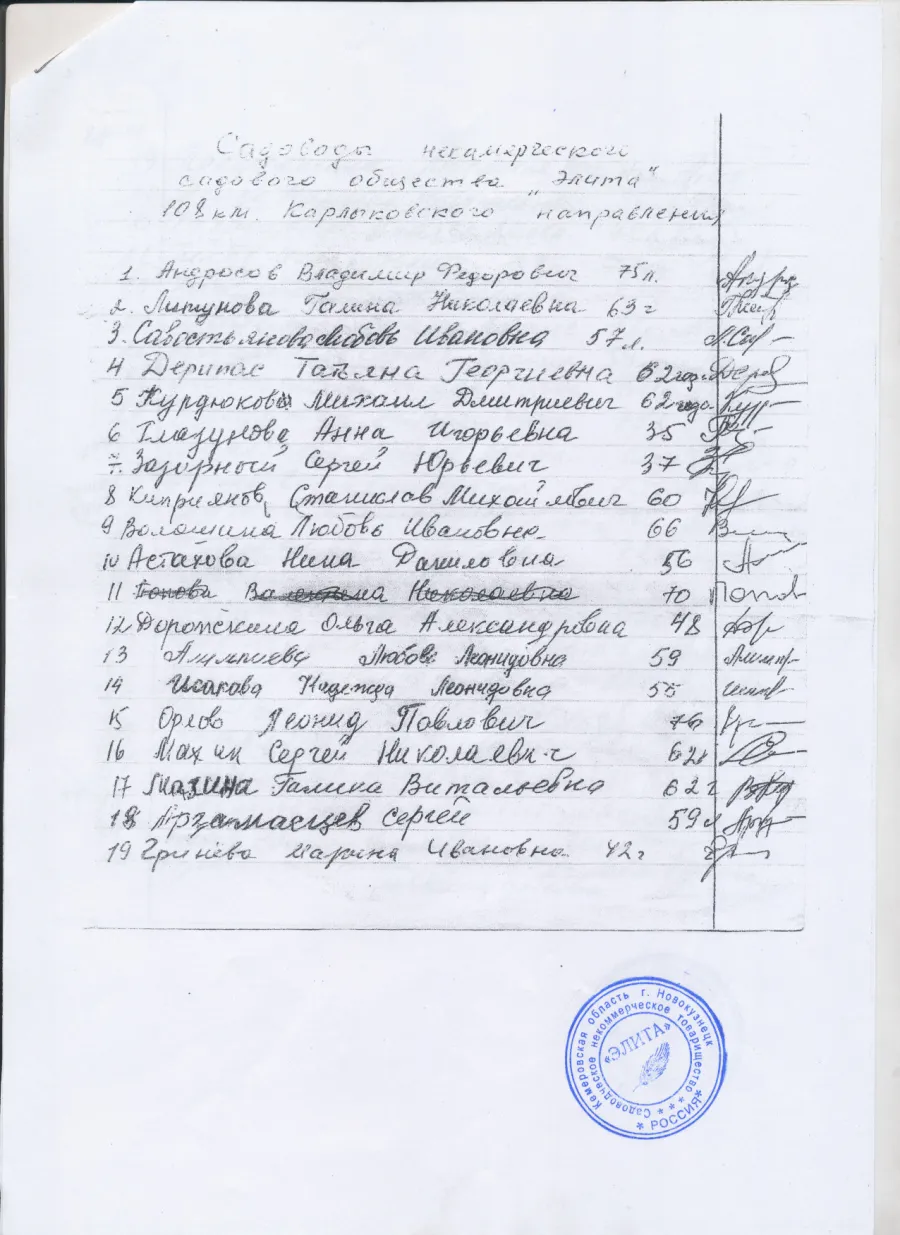 Садоводы некамерческого
садового общества „Элита"
108 км. Карлыковского направления
1. Андросов Владимир Федорович 75 л.
2. Липунова Галина Николаевна 63 г
3. Савостьянова Любовь Ивановна 57 л.
4 Дерипас Татьяна Георгиевна 62 года
5 Курдюков Михаил Дмитриевич 62 года
6 Глазунова Анна Игорьевна 35
7. Зазорный Сергей Юрьевич 37
8 Киприянов Станислав Михайлович 60
9 Волошина Любовь Ивановна 66
10 Астахова Нина Даниловна 56
11 Валентина Николаевна 70
12 Ольга Александровна 48
13 Алимпиева Любовь Леонидовна 59
14 Исакова Надежда Леонидовна 55
15 Орлов Леонид Павлович 76
16 Махин Сергей Николаевич 62г
17 Мазина Галина Витальевна 62 г
18 Арзамасцев Сергей 59 л
19 Гринёва Марина Ивановна 42 г
Кемеровская область г. Новокузнецк
Садоводческое некоммерческое товарищество
«ЭЛИТА»
* РОССИЯ *